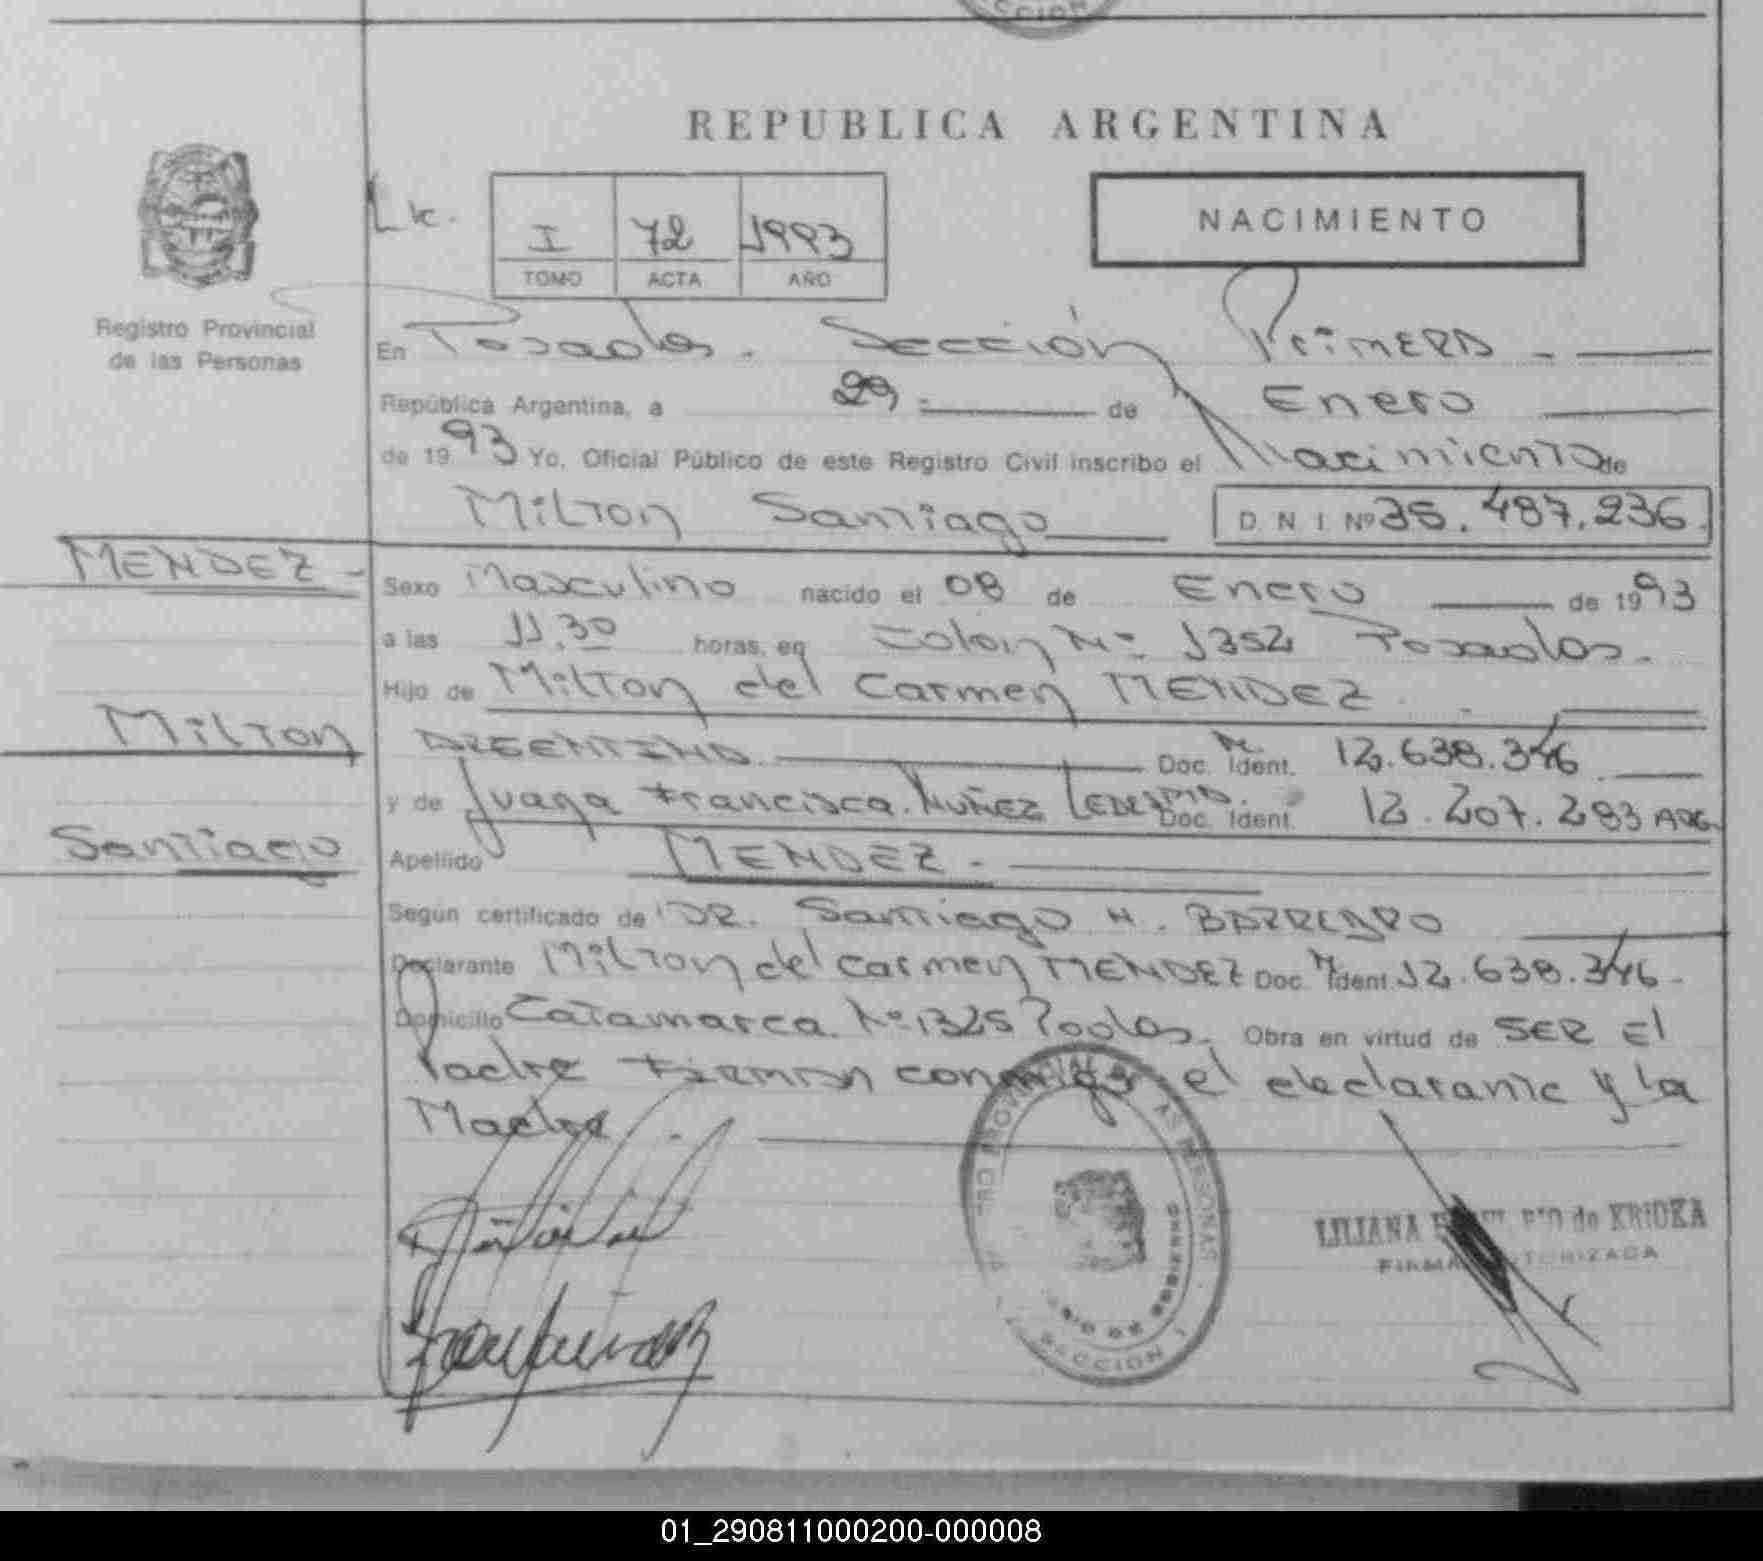 CCION
REPUBLICA ARGENTINA
Lic.
I 72 1993
TOMO ACTA AÑO
NACIMIENTO
Registro Provincial
de las Personas
En Posadas. Sección Primera
República Argentina, a 29 de Enero
de 1993 Yo, Oficial Público de este Registro Civil inscribo el Nacimiento de
Milton Santiago D. N. I. Nº 35.487.236
MENDEZ
Sexo Masculino nacido el 08 de Enero de 1993
a las 11.30 horas, en Colon Nº 1352 Posadas.
Hijo de Milton del Carmen MENDEZ
Milton
ARGENTINO Doc. Ident. 12.638.346
y de Juana Francisca NUÑEZ Doc. Ident. 12.207.283 ARG.
Santiago
Apellido MENDEZ
Según certificado de DR. Santiago H. BARREYRO
Declarante Milton del Carmen MENDEZ Doc. Ident. 12.638.346
Domicilio Catamarca Nº 1325 Posdas. Obra en virtud de SER El
Padre Firman conmigo el declarante y la
Madre
SECCION 1
LILIANA de KRIOKA
FIRMA AUTORIZADA
01_290811000200-000008